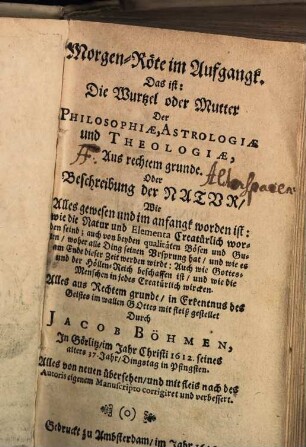 Morgen-Röte im Aufgangk.
Das ist:
Die Wurtzel oder Mutter
Der
PHILOSOPHIÆ, ASTROLOGIÆ
und THEOLOGIÆ,
Aus rechtem grunde.
Oder
Beschreibung der NATUR/
Wie
Alles gewesen und im anfangk worden ist:
wie die Natur und Elementa Creatürlich wor-
den seind; auch von beyden qualitäten Bösen und Gu-
ten/ woher alle Ding seinen Vrsprung hat/ und wie es
am Ende dieser Zeit werden wirdt: Auch wie Gottes-
und der Höllen-Reich beschaffen ist/ und wie die
Menschen in jedes Creatürlich wircken.
Alles aus Rechtem grunde/ in Erkentnus des
Geistes im wallen GOttes mit fleiß gestellet
Durch
JACOB BÖHMEN,
In Görlitz/ im Jahr Christi 1612. seines
alters 37. Jahr/ Dingstag in Pfingsten.
Alles von neuen übersehen/ und mit fleis nach des
Autoris eigenem Manuscripto corrigiret und verbessert.
(o)
Gedruckt zu Ambsterdam/ im Jahr